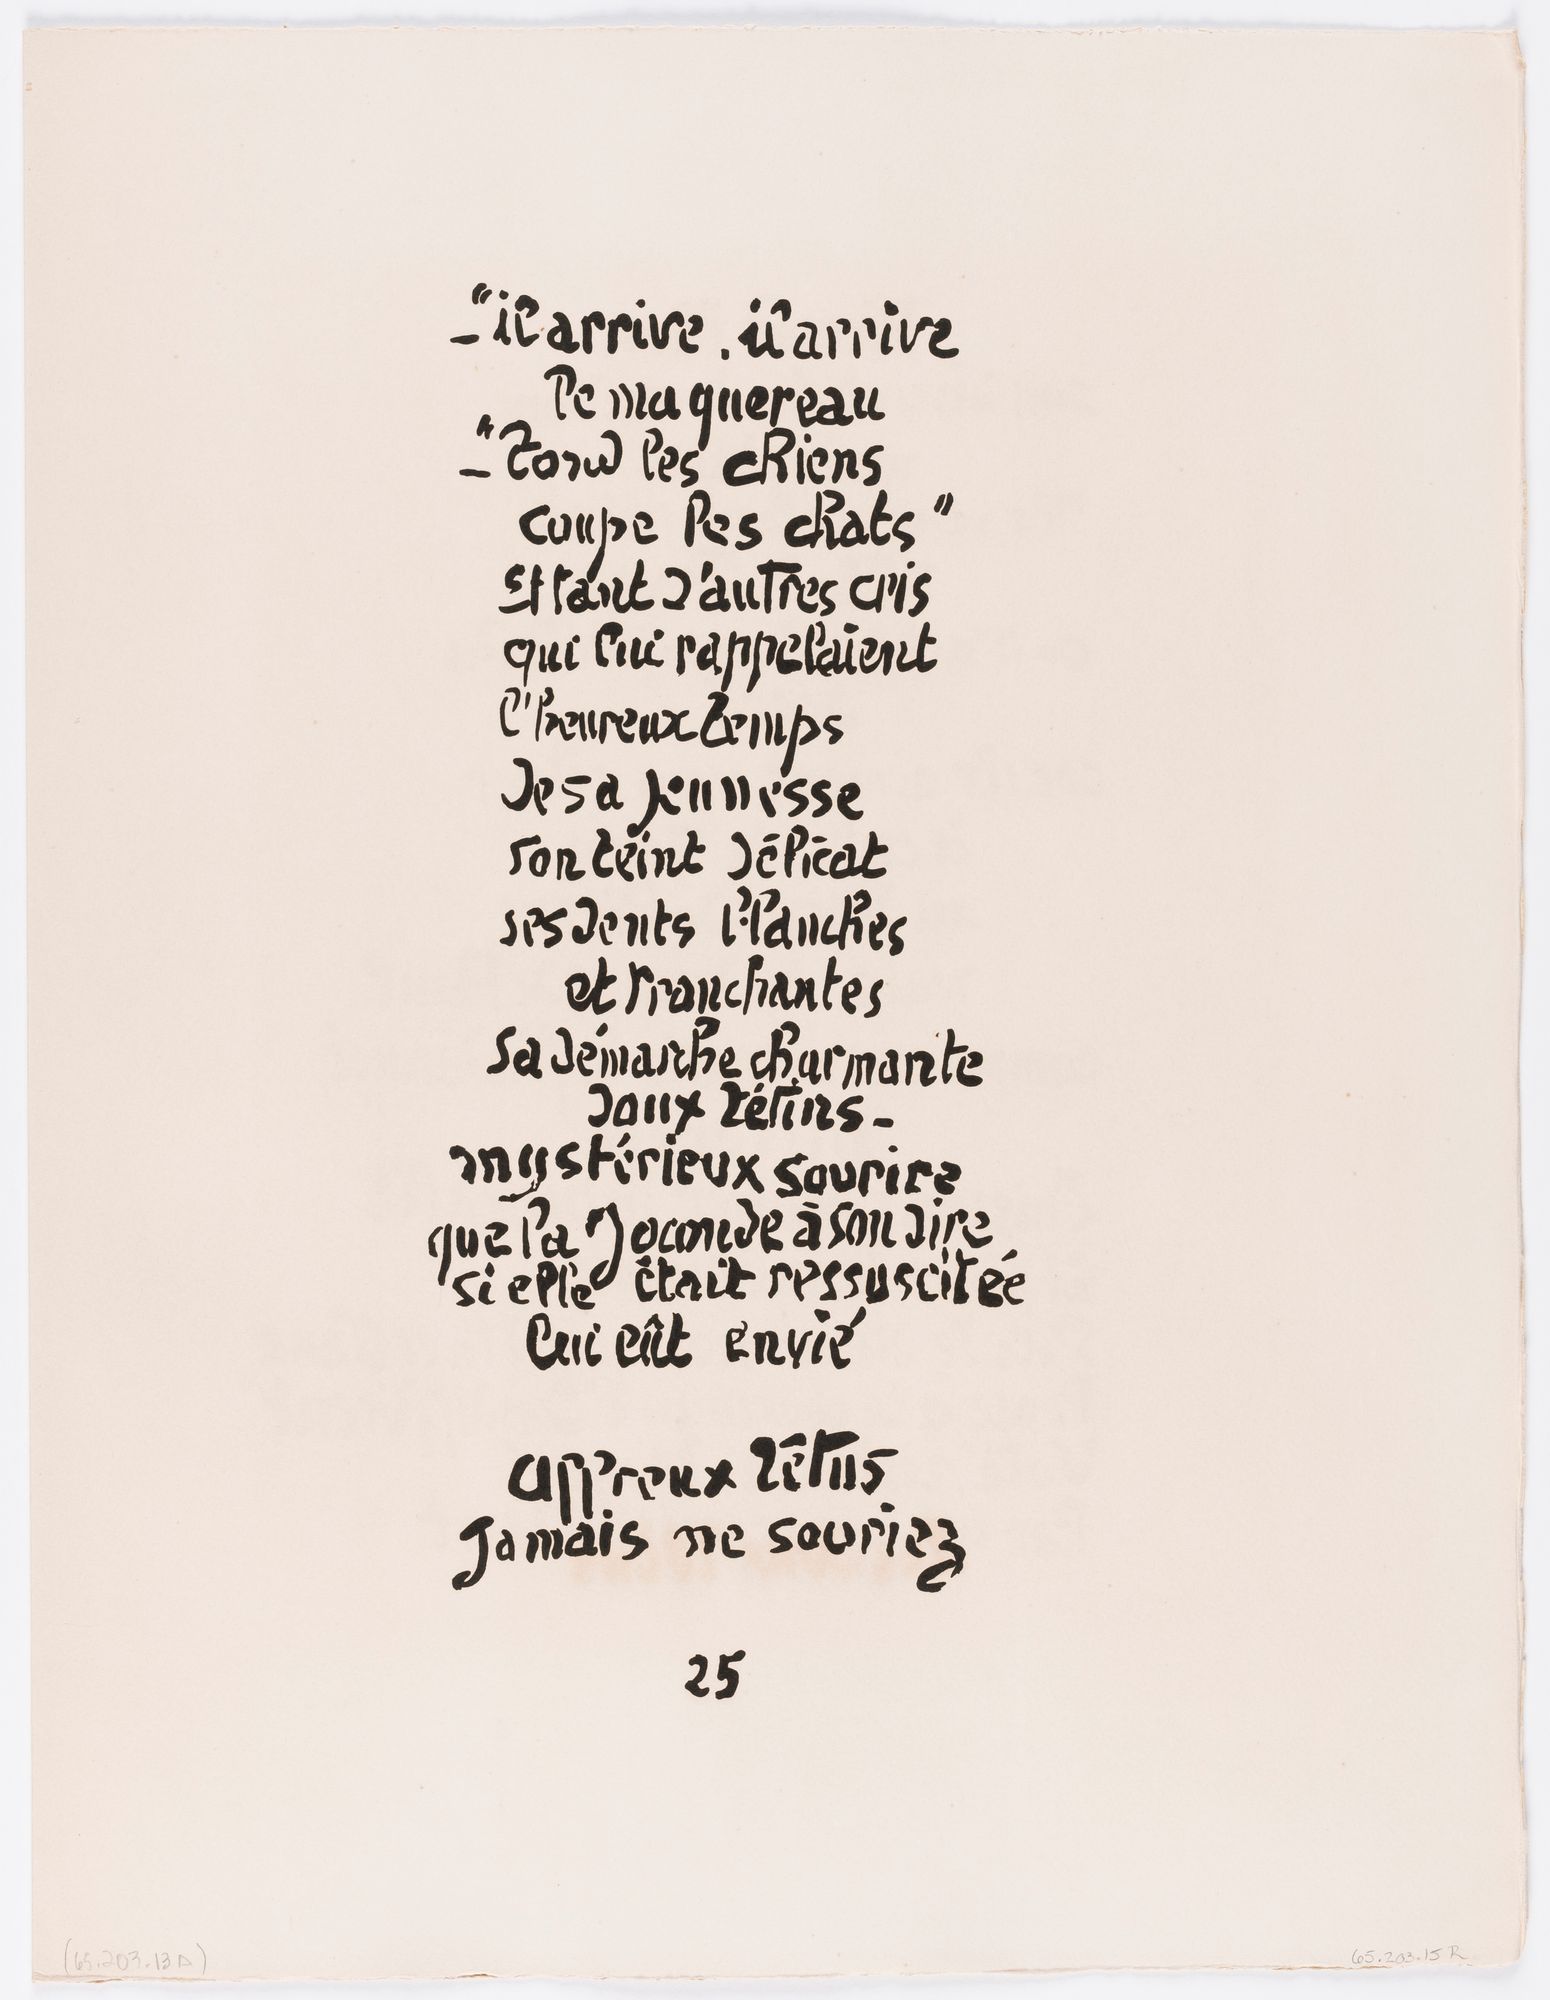 –"il arrive, il arrive
le maquereau
–"tond les chiens
coupe les chats"
Et tant d'autres cris
qui lui rappelaient
l'heureux temps
de sa jeunesse
son teint délicat
ses dents blanches
et tranchantes
sa démarche charmante
doux tétins –
mystérieux sourire
que la Joconde à son dire
si elle était ressuscitée
lui eût envié
affreux rétus
Jamais ne souriez
25
(65.203.13A)
65.203.15 R